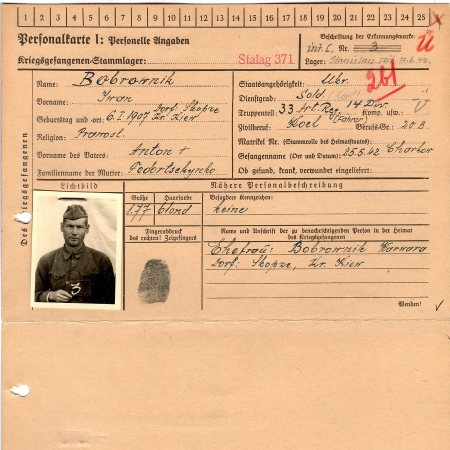 1 2 3 4 5 6 7 8 9 10 11 12 13 14 15 16 17 18 19 20 21 22 23 24 25
Personalkarte I: Personelle Angaben
Kriegsgefangenen-Stammlager: Stalag 371.
Beschriftung der Erkennungsmarke
Nr. 3
Lager:
Ü
261
Des Kriegsgefangenen
Name: Bobrownik
Vorname: Iwan
Geburtstag und -ort: 6.I.1907 Dorf. Skopze Kr. Kiew
Religion: Prawosl.
Vorname des Vaters: Anton +
Familienname der Mutter: Fedortschenko
Staatsangehörigkeit: Ukr.
Dienstgrad: Sold.
Truppenteil: 33 Art. Reg. 14 Div. Komp. usw.:
Zivilberuf: Berufs-Gr.: 20 3
Matrikel Nr. (Stammrolle des Heimatstaates):
Gefangennahme (Ort und Datum): 25.5.42 Charkow
Ob gesund, krank, verwundet eingeliefert:
Lichtbild
Nähere Personalbeschreibung
Größe
Haarfarbe
Besondere Kennzeichen:
1,77
blond
keine
Fingerabdruck
des rechten! Zeigefingers
Name und Anschrift der zu benachrichtigenden Person in der Heimat
des Kriegsgefangenen
Ehefrau: Bobrownik Warwara
Dorf: Skopze, Kr. Kiew
3
Wenden!